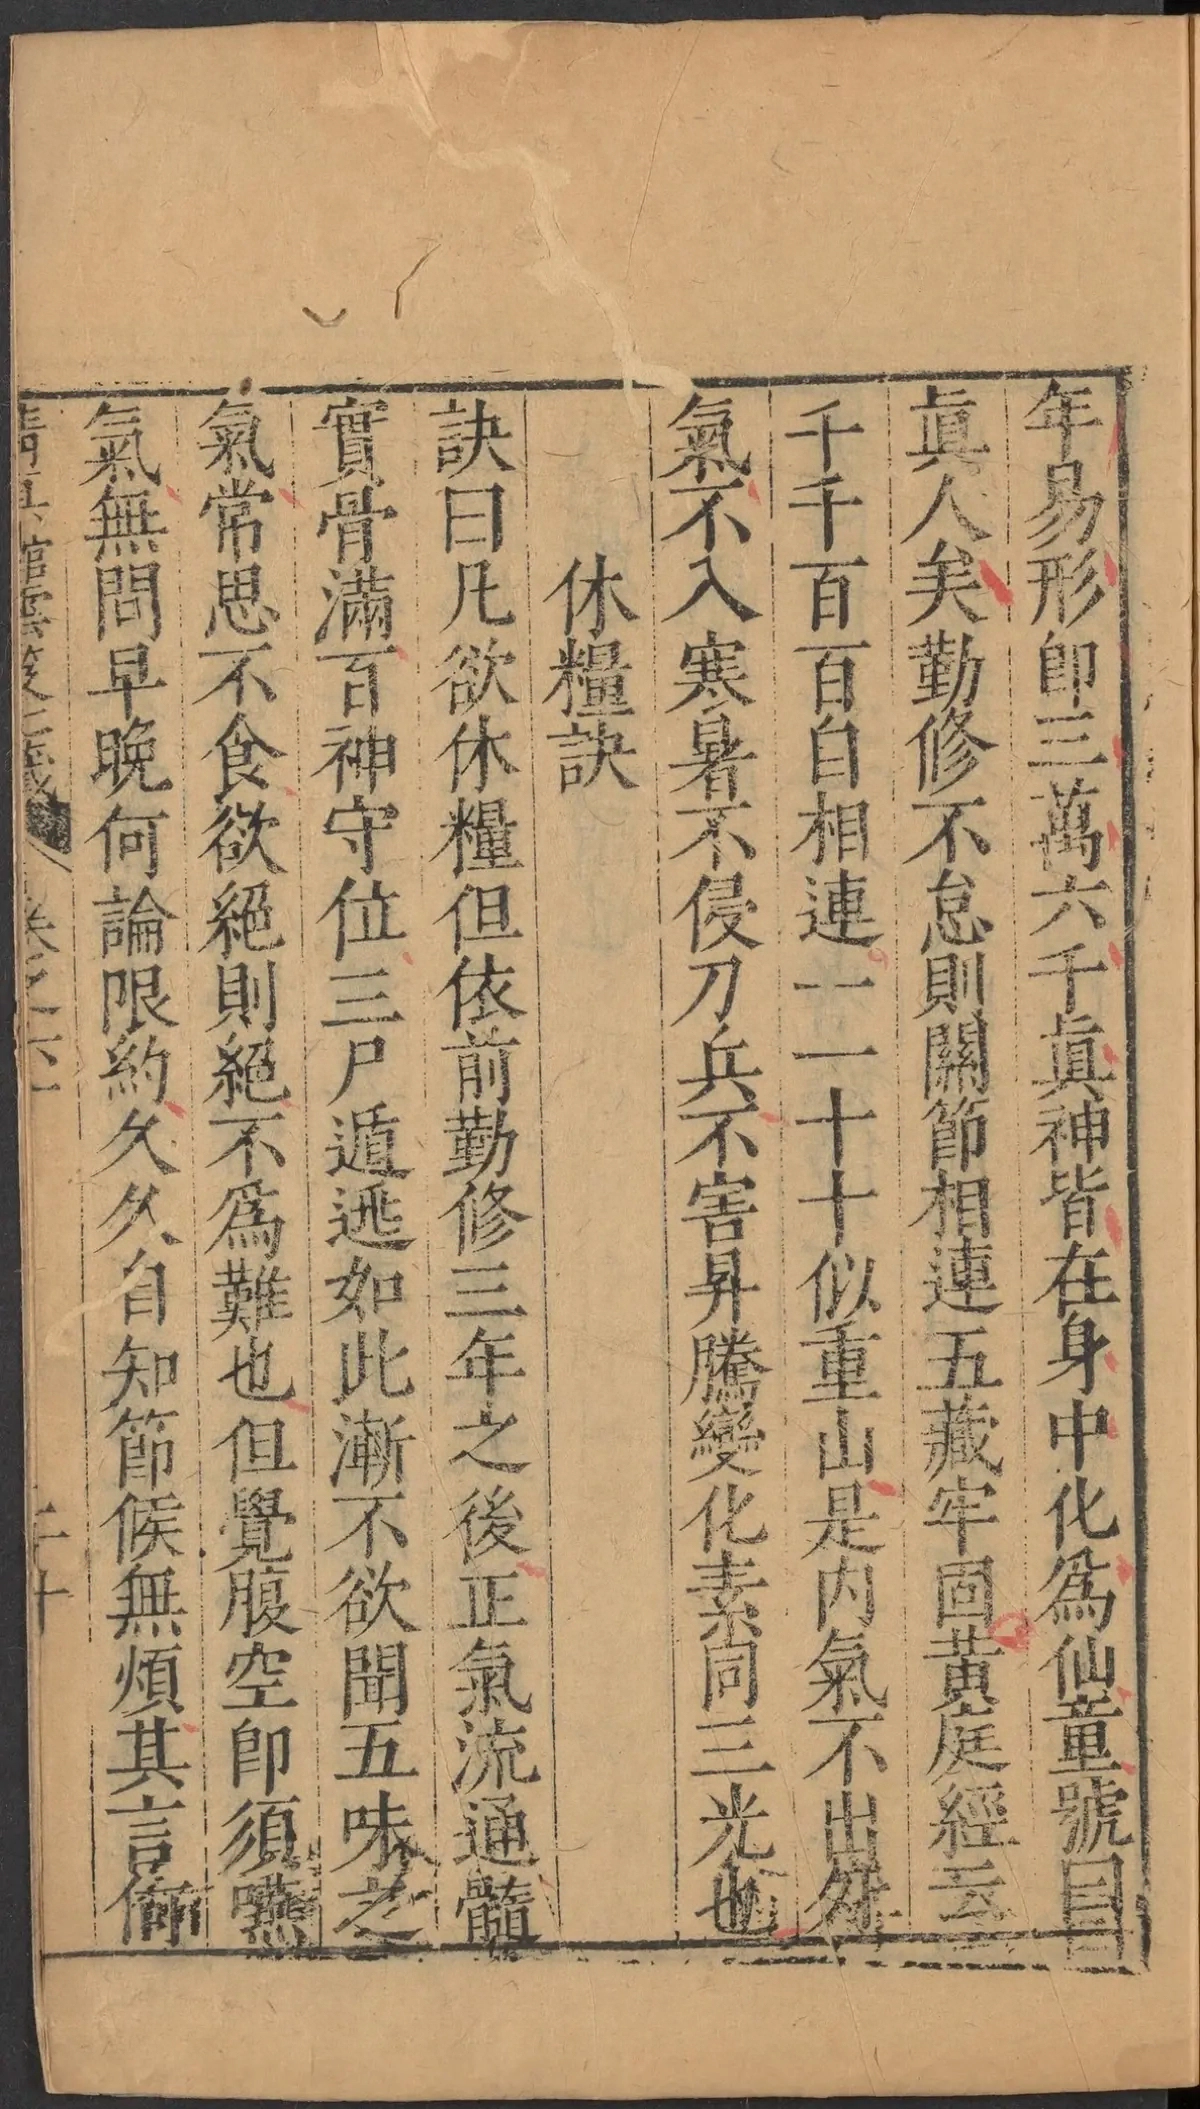 年易形即三萬六千眞神皆在身中化爲仙童號曰
眞人矣勤修不怠則關節相連五藏牢固黃庭經云
千千百百自相連一一十十似重山是内氣不出外
氣不入寒暑不侵刀兵不害昇騰變化素同三光也
休糧訣
訣曰凡欲休糧但依前勤修三年之後正氣流通髓
實骨滿百神守位三尸遁逃如此漸不欲聞五味之
氣常思不食欲絕則絕不爲難也但覺腹空即須嚥
氣無問早晚何論限約久久自知節候無煩其言
清真館雲笈七籤 卷之六十 二十